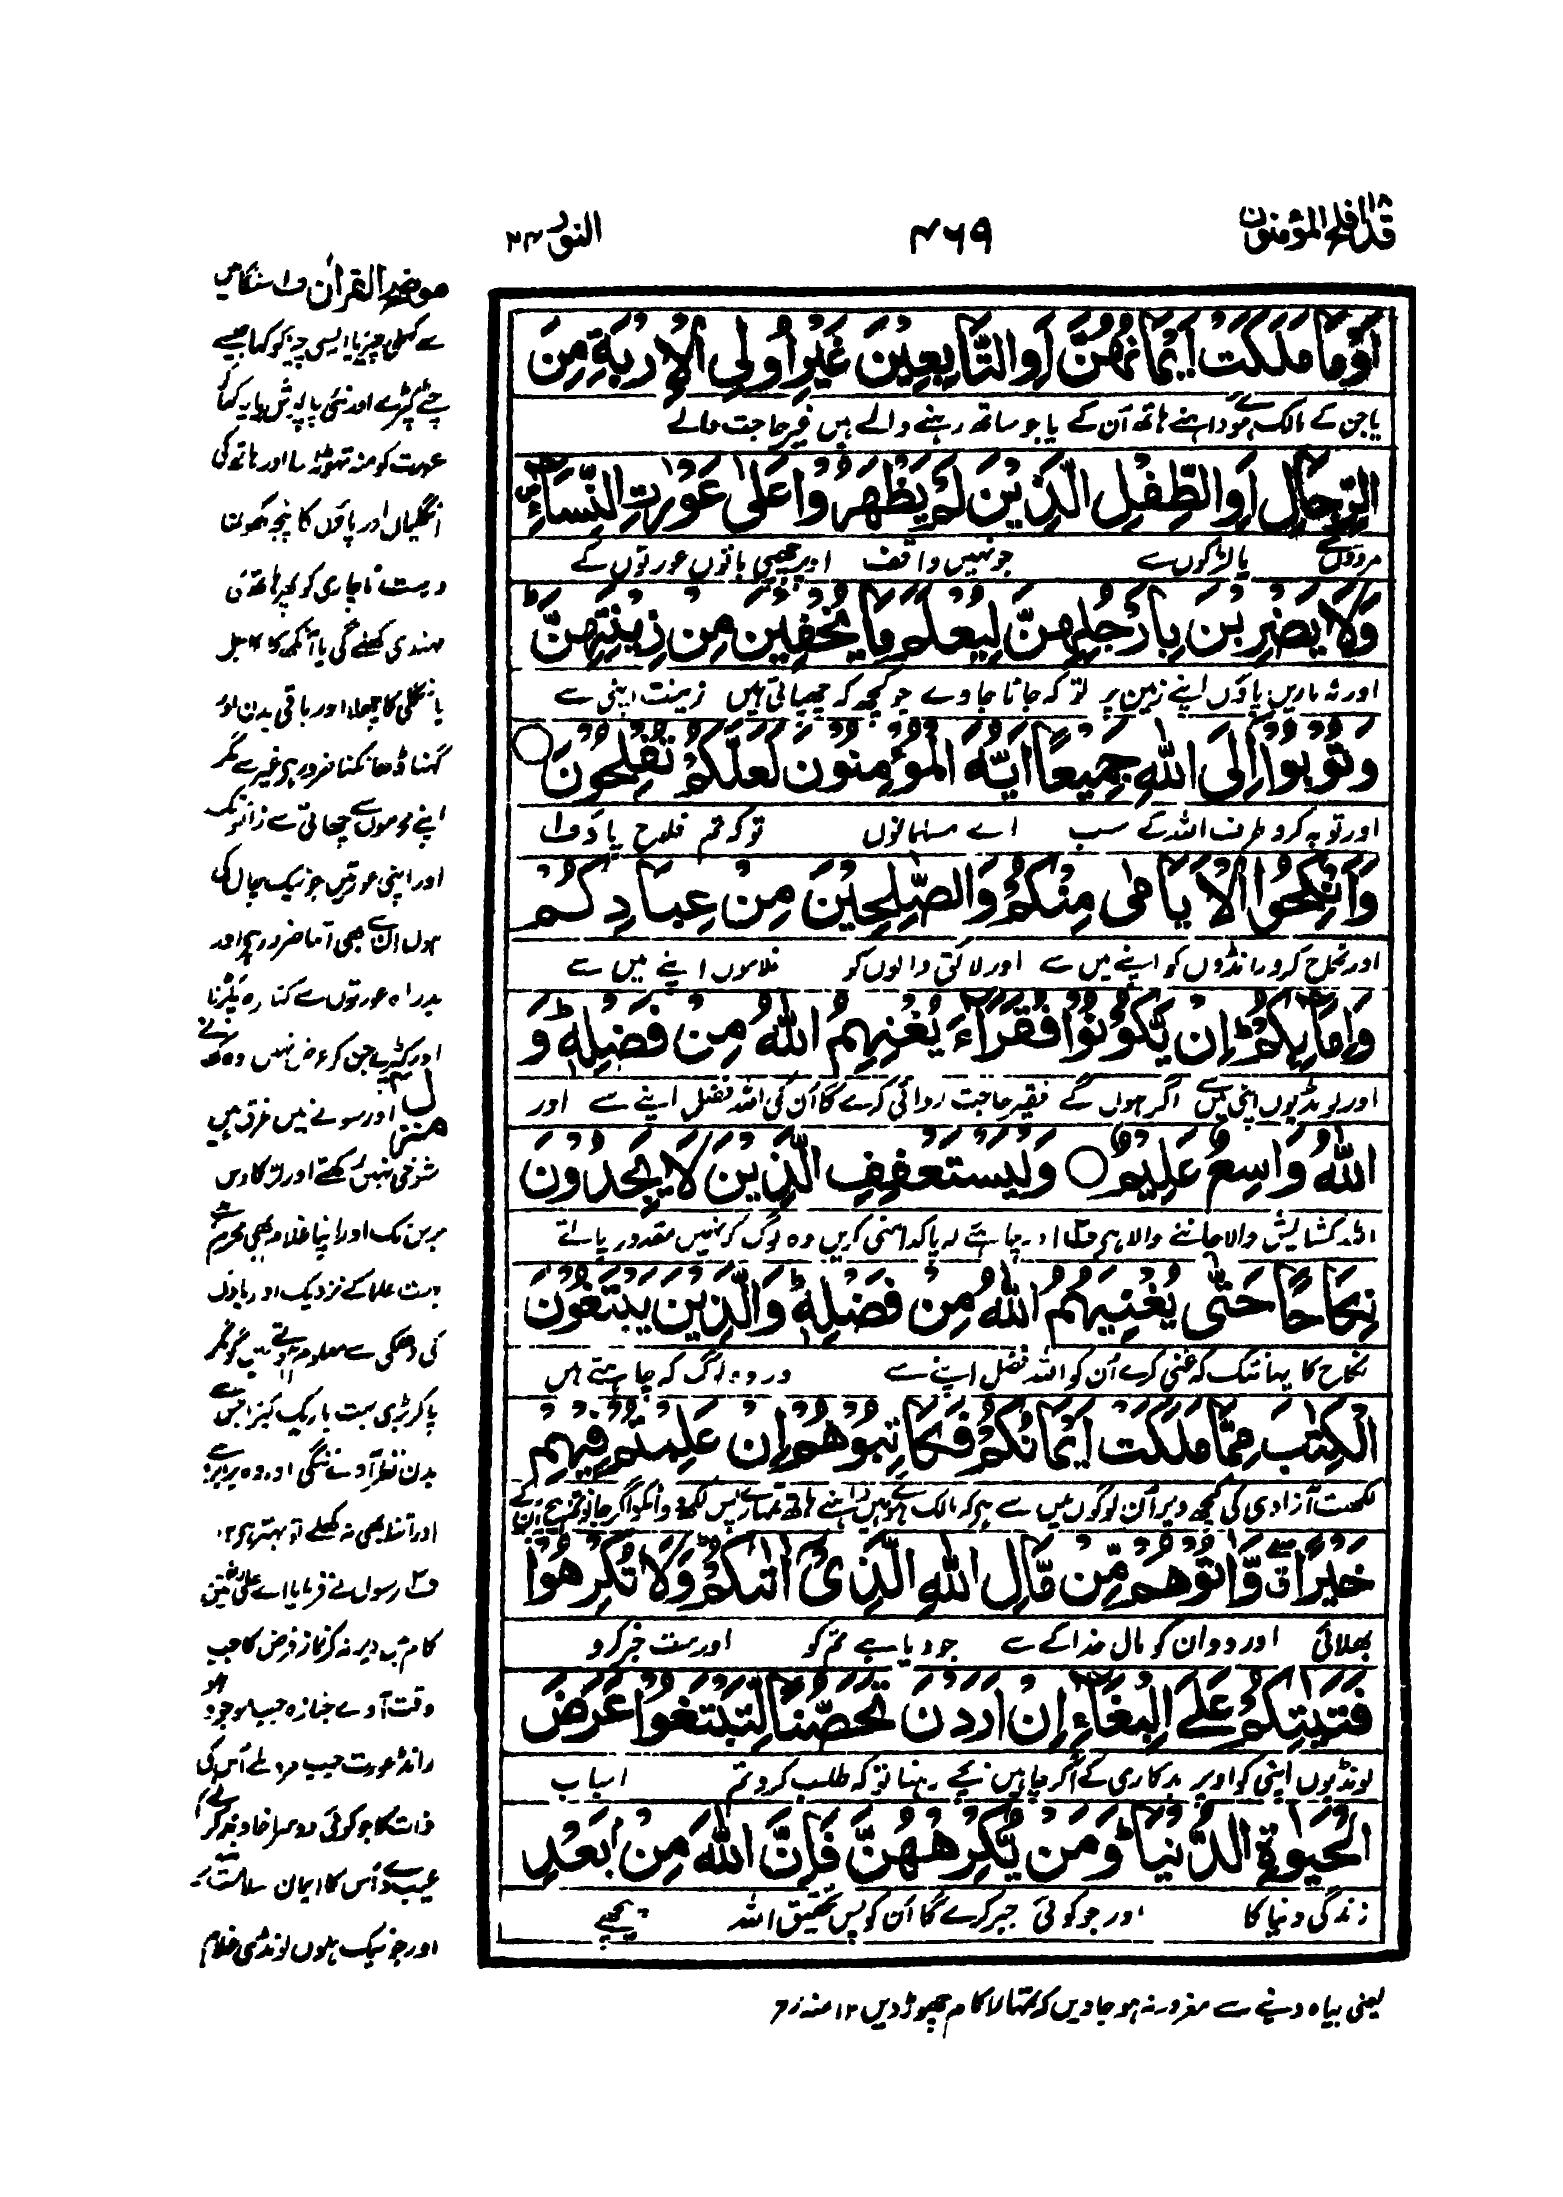 قد افلح المؤمنون ۱۸
۴۶۹
النور ۲۴
اَوْ مَا مَلَكَتْ اَيْمَانُهُنَّ اَوِ التَّابِعِيْنَ غَيْرِ اُولِى الْاِرْبَةِ مِنَ
یا جن کے مالک ہوئے داہنے ہاتھ اُن کے یا جو ساتھ رہنے والے ہیں غیر حاجت والے
الرِّجَالِ اَوِ الطِّفْلِ الَّذِيْنَ لَمْ يَظْهَرُوْا عَلٰى عَوْرٰتِ النِّسَآءِ ص
مردوں سے یا لڑکوں سے جو نہیں واقف اوپر چھپی باتوں عورتوں کے
وَلَا يَضْرِبْنَ بِاَرْجُلِهِنَّ لِيُعْلَمَ مَا يُخْفِيْنَ مِنْ زِيْنَتِهِنَّ ط
اور نہ ماریں پاؤں اپنے زمین پر تو کہ جانا جاوے جو کچھ کہ چھپاتی ہیں زینت اپنی سے
وَتُوْبُوْٓا اِلَى اللّٰهِ جَمِيْعًا اَيُّهَ الْمُؤْمِنُوْنَ لَعَلَّكُمْ تُفْلِحُوْنَ ○
اور توبہ کرو طرف اللہ کے سب اے مسلمانوں تو کہ تم فلاح پاؤ ف۱
وَاَنْكِحُوا الْاَيَامٰى مِنْكُمْ وَالصّٰلِحِيْنَ مِنْ عِبَادِكُمْ
اور نکاح کرو رانڈوں کو اپنے میں سے اور لائق والوں کو غلاموں اپنے میں سے
وَاِمَآئِكُمْ ط اِنْ يَّكُوْنُوْا فُقَرَآءَ يُغْنِهِمُ اللّٰهُ مِنْ فَضْلِهٖ ط وَ
اور لونڈیوں اپنی میں سے اگر ہوں گے فقیر حاجت روائی کرے گا اُن کی اللہ فضل اپنے سے اور
اللّٰهُ وَاسِعٌ عَلِيْمٌ ○ وَلْيَسْتَعْفِفِ الَّذِيْنَ لَا يَجِدُوْنَ
اللہ کشایش والا جاننے والا ہے ف۲ اور چاہئے کہ پاکدامنی کریں وہ لوگ کہ نہیں مقدور پاتے
نِكَاحًا حَتّٰى يُغْنِيَهُمُ اللّٰهُ مِنْ فَضْلِهٖ ط وَالَّذِيْنَ يَبْتَغُوْنَ
نکاح کا یہانتک کہ غنی کرے اُن کو اللہ فضل اپنے سے اور وہ لوگ کہ چاہتے ہیں
الْكِتٰبَ مِمَّا مَلَكَتْ اَيْمَانُكُمْ فَكَاتِبُوْهُمْ اِنْ عَلِمْتُمْ فِيْهِمْ
لکھت آزادی کی کچھ دیر اُن لوگوں میں سے ہے کہ مالک ہوئے ہیں داہنے ہاتھ تمہارے پس لکھ دو اُنکو اگر جانو تم بیچ اُن کے
خَيْرًا ق وَّاٰتُوْهُمْ مِّنْ مَّالِ اللّٰهِ الَّذِىْٓ اٰتٰىكُمْ ط وَلَا تُكْرِهُوْا
بھلائی اور دو ان کو مال خدا کے سے جو دیا ہے تم کو اور مت جبر کرو
فَتَيٰتِكُمْ عَلَى الْبِغَآءِ اِنْ اَرَدْنَ تَحَصُّنًا لِّتَبْتَغُوْا عَرَضَ
لونڈیوں اپنی کو اوپر بدکاری کے اگر چاہیں بچے رہنا تو کہ طلب کرو تم اسباب
الْحَيٰوةِ الدُّنْيَا ط وَمَنْ يُّكْرِهْهُّنَّ فَاِنَّ اللّٰهَ مِنْ بَعْدِ
زندگی دنیا کا اور جو کوئی جبر کرے گا اُن کو پس تحقیق اللہ پیچھے
موضح القرآن ف۱ سنگار میں
سے کھلی چیز یا ایسی چیز کو کہا جیسے
کپڑے اور نئی پاپوش یا یہ کہا
عورت کو منہ تھوڑا سا اور ہاتھ کی
انگلیاں اور پاؤں کا پنجہ کھولنا
درست ناچاری کو پھر ہاتھ میں
مہندی کھلے گی یا آنکھ کا کاجل
یا انگلی کا چھلا اور باقی بدن اور
گہنا ڈھانکنا ضرور ہے غیر سے مگر
اپنے محرموں سے چھاتی سے زانو تک
اور اپنی عورتیں جو نیک چال کی
ہوں ان سے بھی اتنا ضرور ہے اور
بدراہ عورتوں سے کنارہ پکڑنا
اور کمیرے جن کو غرض نہیں وہ کہ
منزل ۴ اور سونے میں غرق ہیں
شوخی نہیں رکھتے اور لڑکا دس
برس تک اور اپنا غلام بھی محرم ہے
بہت علما کے نزدیک اور پاؤں
کی دھمکی سے معلوم ہوتے ہیں
یا کرتی بہت باریک کپڑا جس سے
بدن نظر آوے ننگی اور وہ برابر ہے
اور اتنا بھی نہ کھلے تو بہتر ہے ۱۲
ف۲ رسول نے فرمایا اے علی تین
کام میں دیر نہ کر نماز فرض کا جب
وقت آوے جنازہ جب موجود ہو
رانڈ عورت جب مرد ملے اُس کی
ذات کا جو کوئی دوسرا خاوند کر
عیب دے اُس کا ایمان سلامت نہیں
اور جو نیک ہوں لونڈی غلام
یعنی بیاہ دینے سے مغرور نہ ہو جاویں کہ تمہارا کام چھوڑ دیں ۱۲ منہ رح